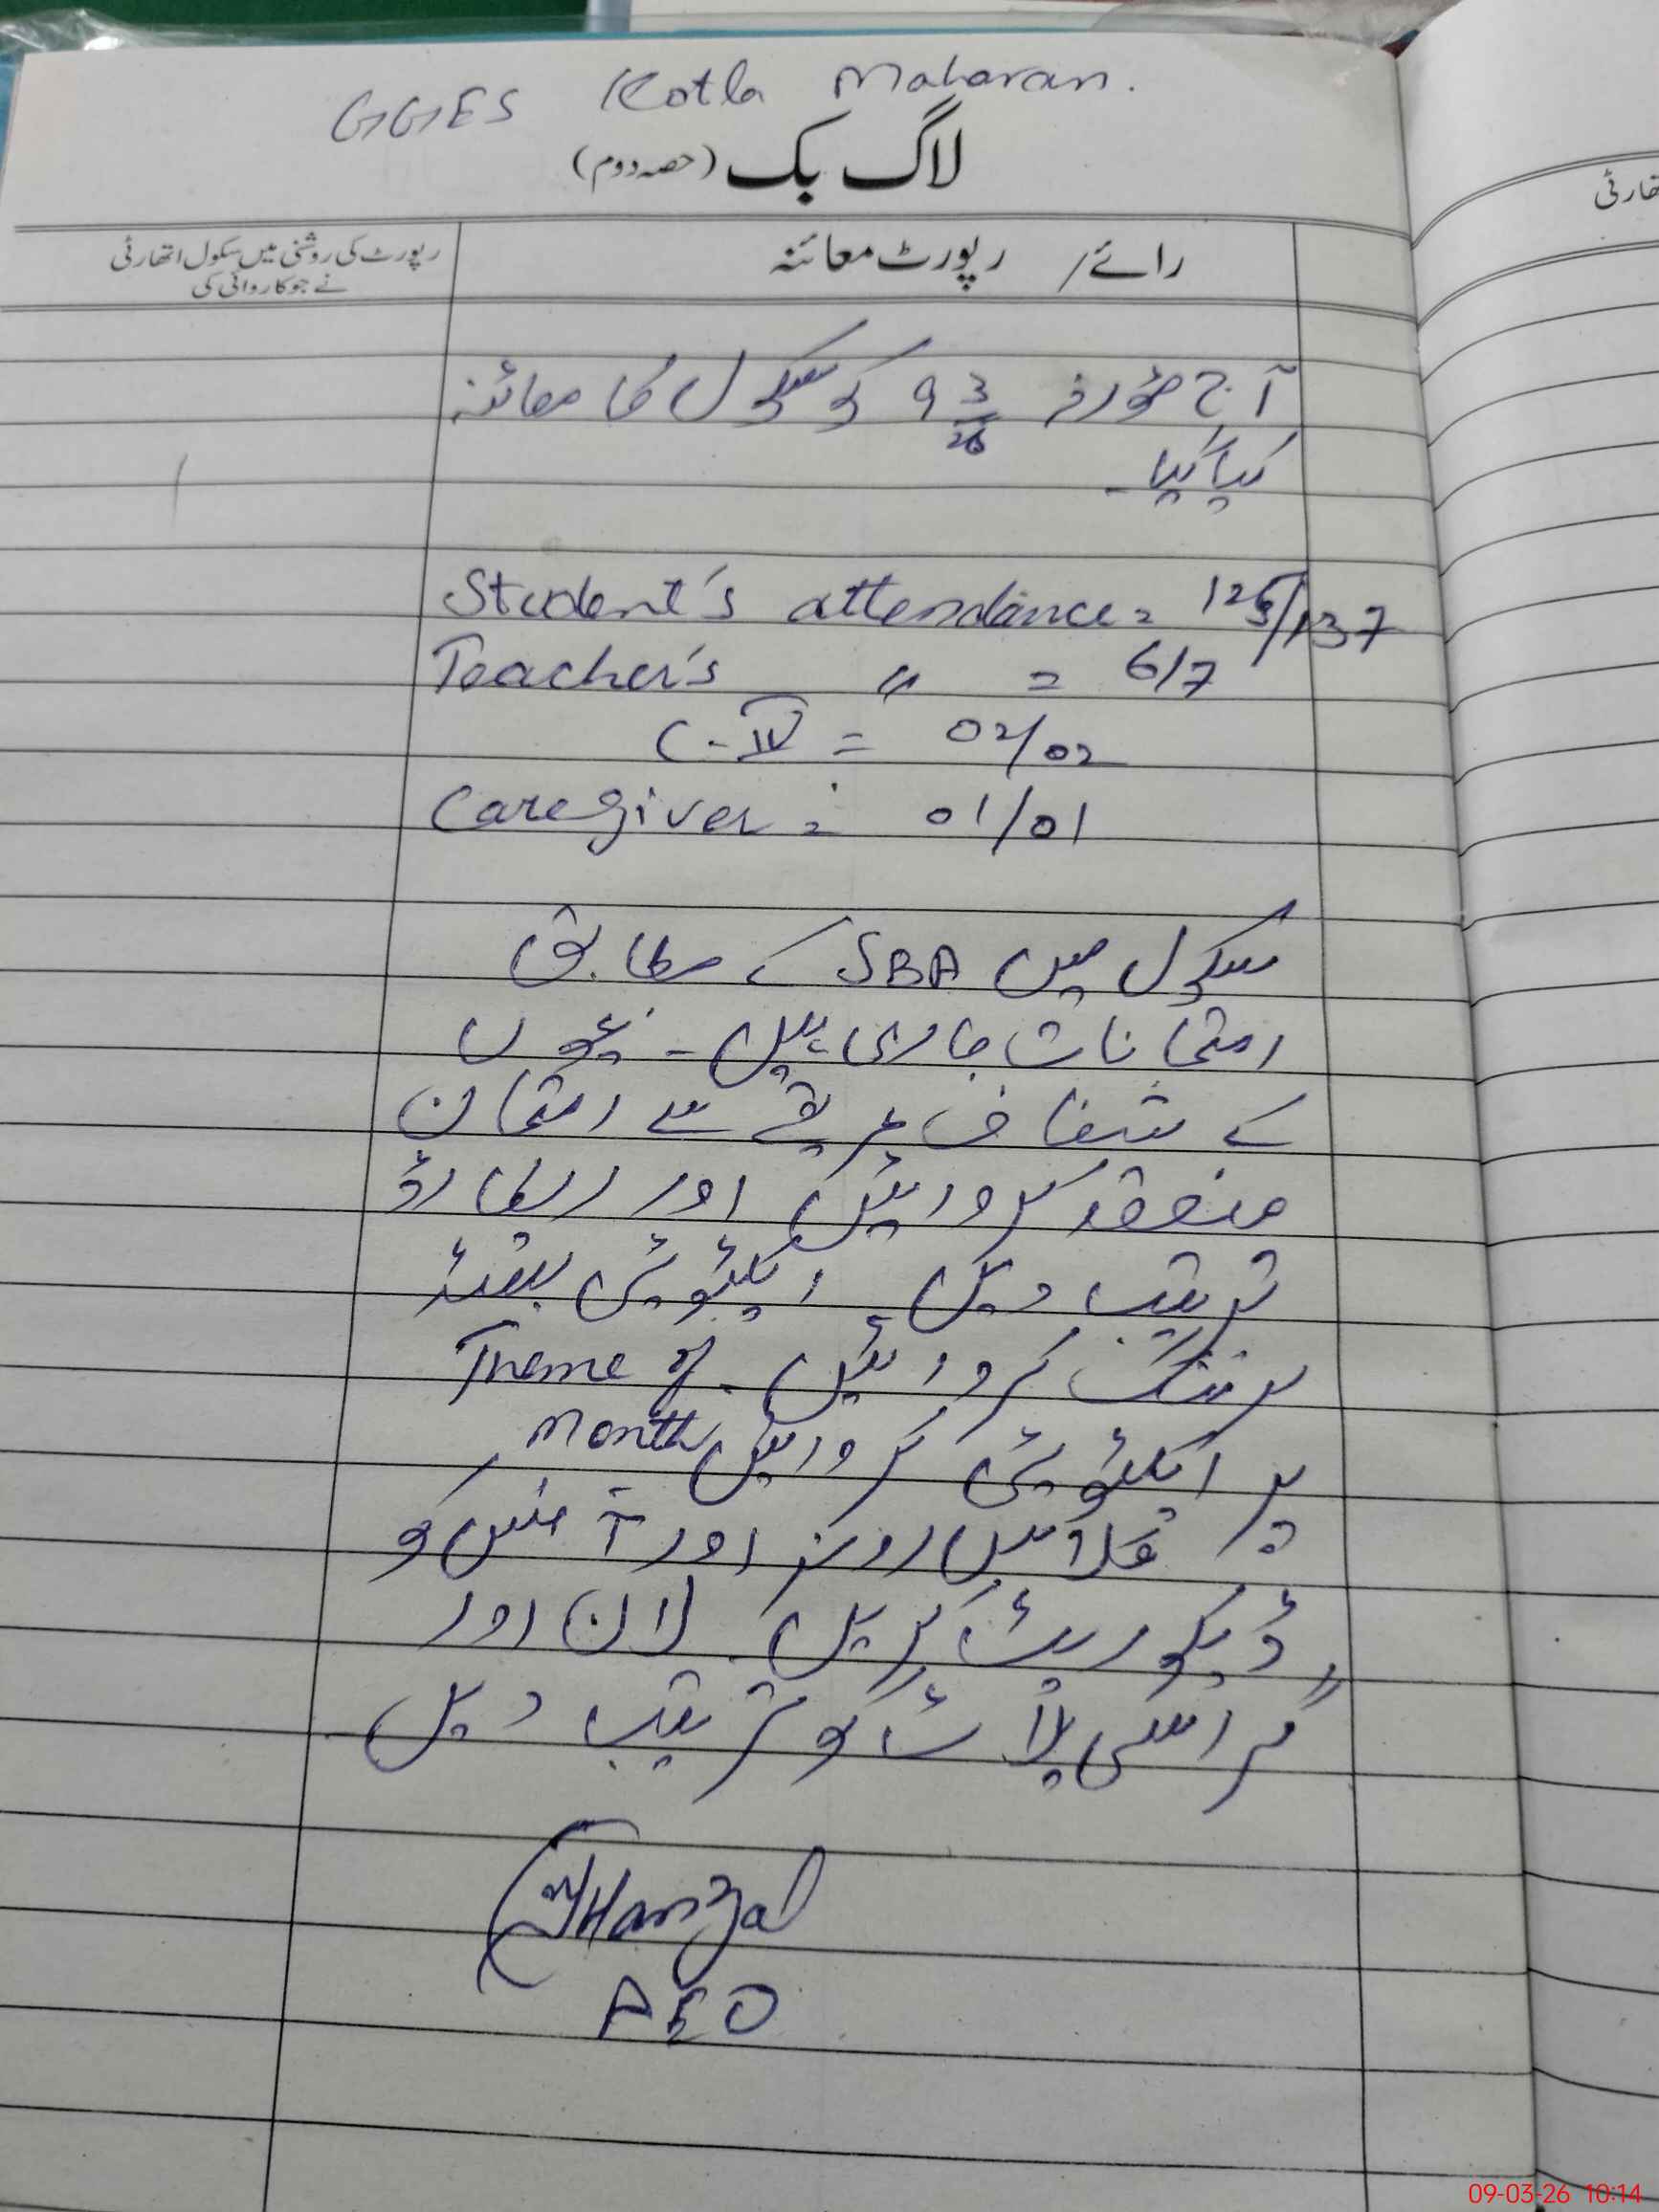 GGES Kotla Maharan.
لاگ بک (حصہ دوم)
رائے / رپورٹ معائنہ
رپورٹ کی روشنی میں سکول اتھارٹی
نے جو کاروائی کی
تھارٹی
آج مؤرخہ 9 3/26 کو سکول کا معائنہ
کیا گیا۔
Student's attendance = /137
Teacher's " = 6/7
C-IV = 02/02
Caregiver = 01/01
سکول میں SBA کے مطابق
امتحانات جاری ہیں۔ بچوں
کے شفاف طریقے سے امتحان
منعقد کروائیں اور ریکارڈ
ترتیب دیں۔ ایکٹیویٹی
کروائیں۔ Theme of
Month
پر ایکٹیویٹی کروائیں
کلاس رومز اور آفس کو
ڈیکوریٹ کریں۔ لان اور
گراسی پلاٹ کو ترتیب دیں۔
AEO
09-03-26 10:14